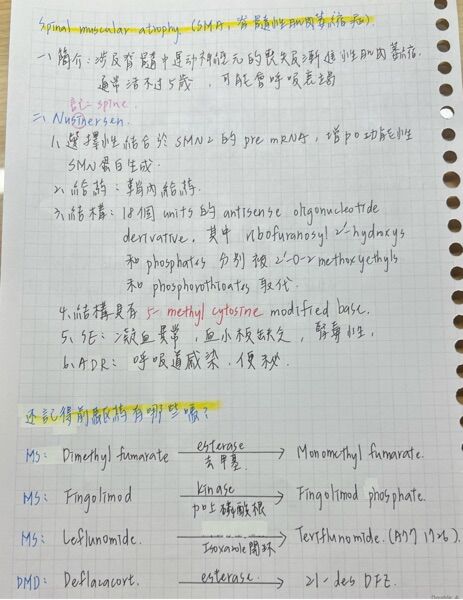 Spinal muscular atrophy (SMA, 脊髓性肌肉萎縮症)
一、簡介:涉及脊髓中運動神經元的喪失及漸進性肌肉萎縮.
通常活不过5歲,可能會呼吸衰竭
記=spine.
二、Nusinersen.
1. 選擇性結合於SMN2的pre mRNA, 增加功能性
SMN蛋白生成.
2. 給药:鞘內給药.
3. 結構:18個 units 的 antisense oligonucleotide
derivative, 其中 ribofuranosyl 2'-hydroxys
和 phosphates 分別被 2'-O-2 methoxyethyls
和 phosphorothioates 取代.
4. 結構具有 5-methyl cytosine modified base.
5. SE: 凝血異常, 血小板缺乏, 腎毒性.
6. ADR: 呼吸道感染, 便秘.
还記得前驅药有哪些嗎?
MS: Dimethyl fumarate esterase 去甲基 → Monomethyl fumarate.
MS: Fingolimod kinase 加上磷酸根 → Fingolimod phosphate.
MS: Leflunomide. Isoxazole開环 → Teriflunomide. (A77 1726).
DMD: Deflazacort. esterase. → 21-des DFZ.